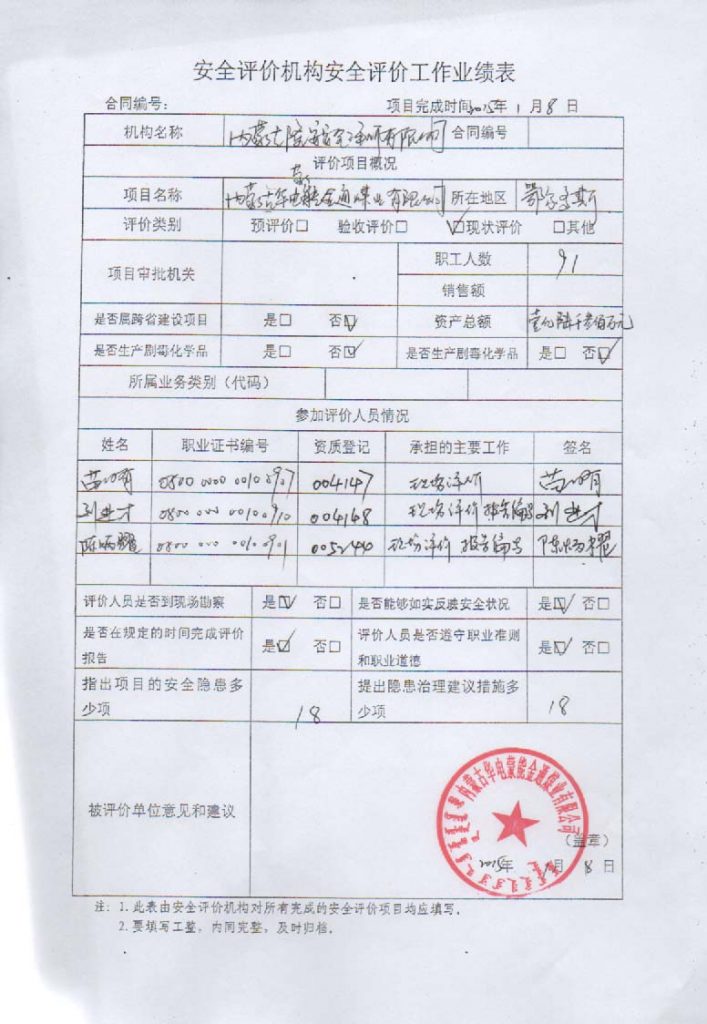 安全评价机构安全评价工作业绩表
合同编号： 项目完成时间2015年 1 月 8 日
机构名称 内蒙古 安全评价有限公司 合同编号
评价项目概况
项目名称 内蒙古华电蒙能金通煤业有限公司 所在地区 鄂尔多斯
评价类别 预评价□ 验收评价□ ☑现状评价 □其他
项目审批机关 职工人数 91
销售额
是否属跨省建设项目 是□ 否☑ 资产总额 壹亿陆千叁佰万元
是否生产剧毒化学品 是□ 否☑ 是否生产剧毒化学品 是□ 否☑
所属业务类别（代码）
参加评价人员情况
姓名 职业证书编号 资质登记 承担的主要工作 签名
苗 有 0800 0000 0010 0907 004147 现场评价 苗 有
刘进才 0800 000 00100910 004148 现场评价 报告编写 刘进才
陈炳耀 0800 000 0010 0901 005244 现场评价 报告编写 陈炳耀
评价人员是否到现场勘察 是☑ 否□ 是否能够如实反映安全状况 是☑ 否□
是否在规定的时间完成评价报告 是☑ 否□ 评价人员是否遵守职业准则和职业道德 是☑ 否□
指出项目的安全隐患多少项 18 提出隐患治理建议措施多少项 18
被评价单位意见和建议
内蒙古华电蒙能金通煤业有限公司
（盖章）
2015年 月 8 日
注：1.此表由安全评价机构对所有完成的安全评价项目均应填写。
2.要填写工整，内间完整，及时归档。